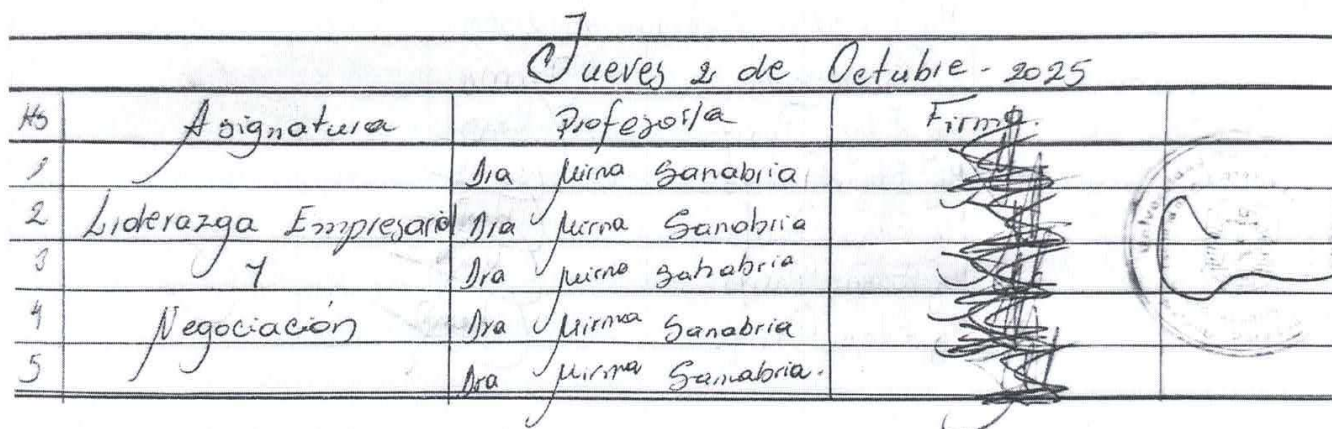 Jueves 2 de Octubre - 2025
Hs Asignatura Profesor/a Firma.
1 Dra Mirna Sanabria
2 Liderazgo Empresarial Dra Mirna Sanabria
3 y Dra Mirna Sanabria
4 Negociación Dra Mirna Sanabria
5 Dra Mirna Sanabria.